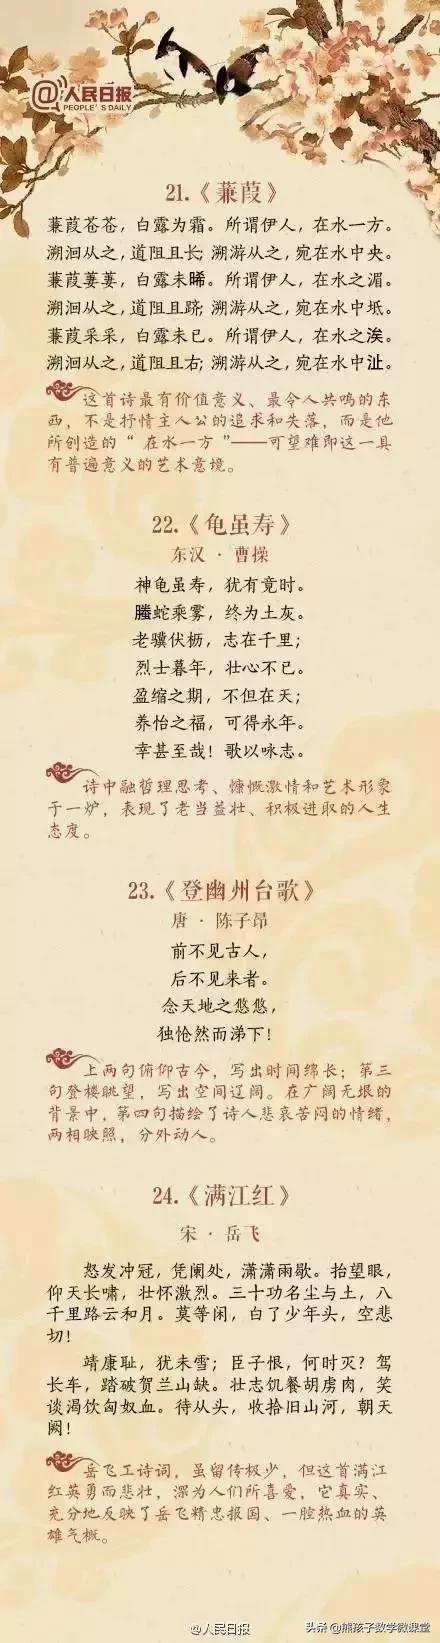 @人民日报
PEOPLE'S DAILY
21.《蒹葭》
蒹葭苍苍，白露为霜。所谓伊人，在水一方。
溯洄从之，道阻且长；溯游从之，宛在水中央。
蒹葭萋萋，白露未晞。所谓伊人，在水之湄。
溯洄从之，道阻且跻；溯游从之，宛在水中坻。
蒹葭采采，白露未已。所谓伊人，在水之涘。
溯洄从之，道阻且右；溯游从之，宛在水中沚。
这首诗最有价值意义、最令人共鸣的东
西，不是抒情主人公的追求和失落，而是他
所创造的“在水一方”——可望难即这一具
有普遍意义的艺术意境。
22.《龟虽寿》
东汉·曹操
神龟虽寿，犹有竟时。
螣蛇乘雾，终为土灰。
老骥伏枥，志在千里；
烈士暮年，壮心不已。
盈缩之期，不但在天；
养怡之福，可得永年。
幸甚至哉！歌以咏志。
诗中融哲理思考、慷慨激情和艺术形象
于一炉，表现了老当益壮、积极进取的人生
态度。
23.《登幽州台歌》
唐·陈子昂
前不见古人，
后不见来者。
念天地之悠悠，
独怆然而涕下！
上两句俯仰古今，写出时间绵长；第三
句登楼眺望，写出空间辽阔。在广阔无垠的
背景中，第四句描绘了诗人悲哀苦闷的情绪，
两相映照，分外动人。
24.《满江红》
宋·岳飞
怒发冲冠，凭阑处，潇潇雨歇。抬望眼，
仰天长啸，壮怀激烈。三十功名尘与土，八
千里路云和月。莫等闲，白了少年头，空悲
切！
靖康耻，犹未雪；臣子恨，何时灭？驾
长车，踏破贺兰山缺。壮志饥餐胡虏肉，笑
谈渴饮匈奴血。待从头，收拾旧山河，朝天
阙！
岳飞工诗词，虽留传极少，但这首满江
红英勇而悲壮，深为人们所喜爱，它真实、
充分地反映了岳飞精忠报国、一腔热血的英
雄气概。
@人民日报
头条@熊孩子数学微课堂